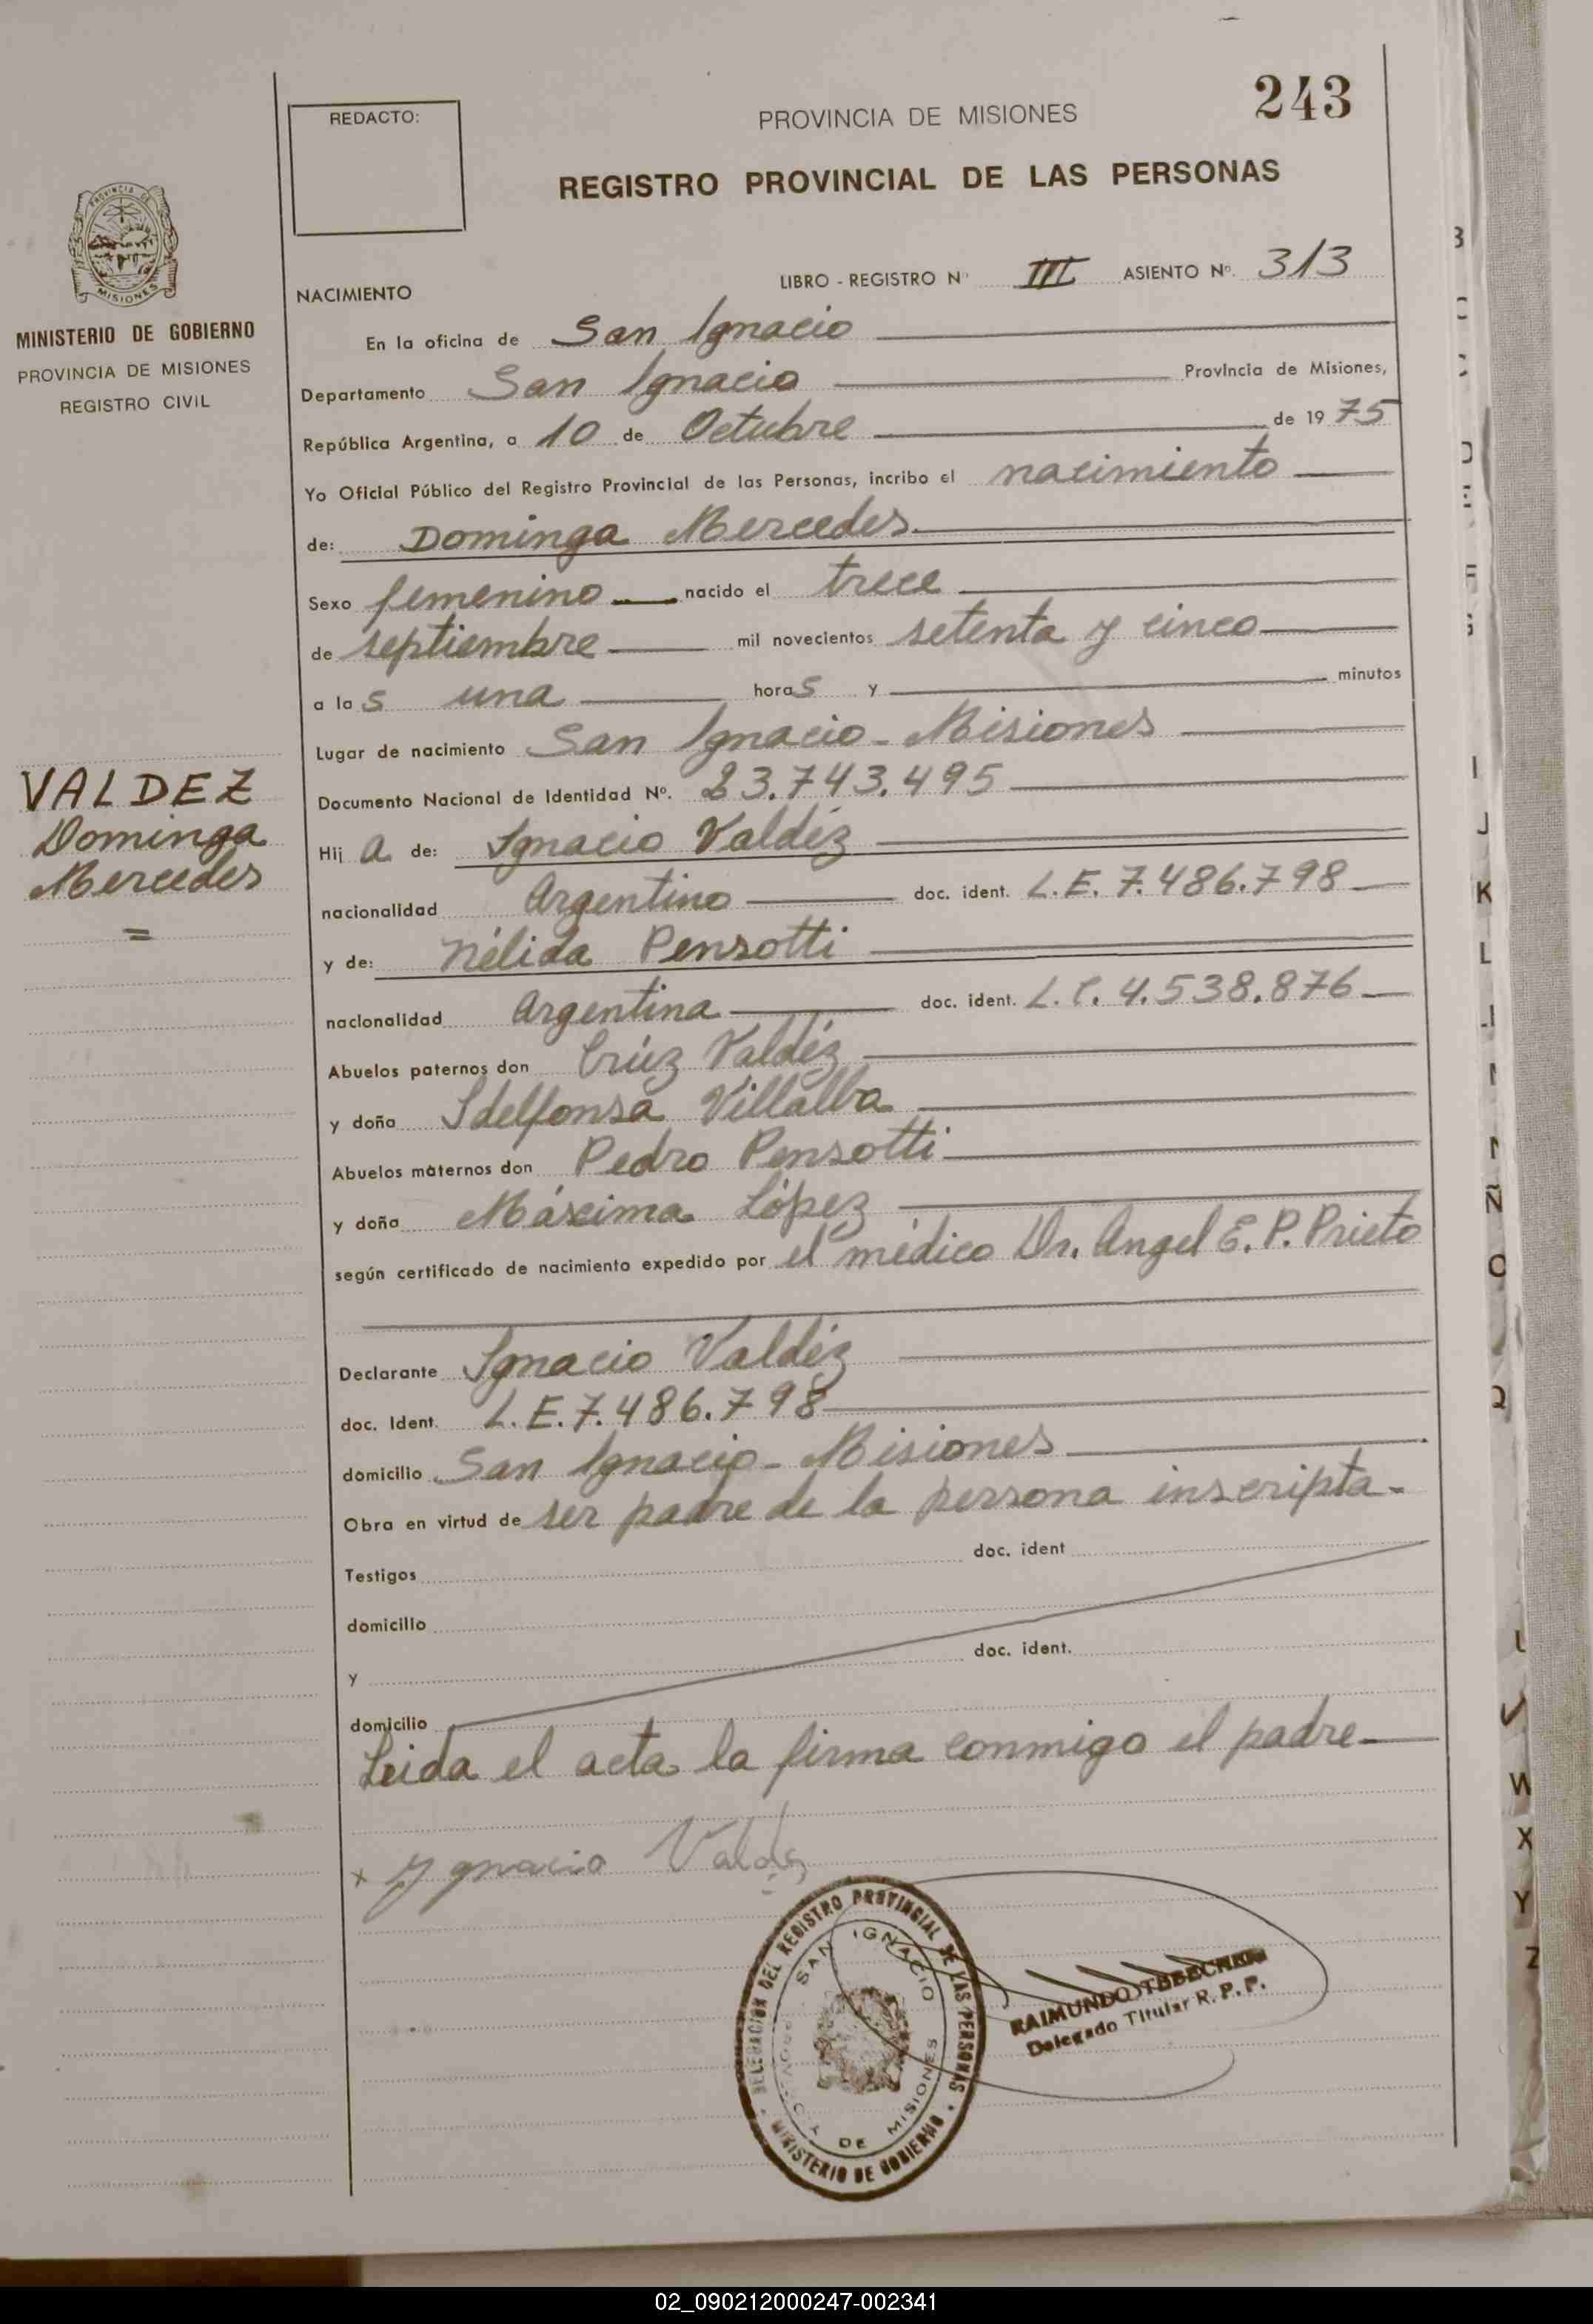 243
REDACTO:
PROVINCIA DE MISIONES
REGISTRO PROVINCIAL DE LAS PERSONAS
PROVINCIA DE
MISIONES
MINISTERIO DE GOBIERNO
PROVINCIA DE MISIONES
REGISTRO CIVIL
LIBRO - REGISTRO Nº III ASIENTO Nº. 313
NACIMIENTO
En la oficina de San Ignacio
Departamento San Ignacio Provincia de Misiones,
República Argentina, a 10 de Octubre de 1975
Yo Oficial Público del Registro Provincial de las Personas, incribo el nacimiento
de: Dominga Mercedes
Sexo femenino nacido el trece
de septiembre mil novecientos setenta y cinco
a las una horas y minutos
Lugar de nacimiento San Ignacio - Misiones
Documento Nacional de Identidad Nº. 23.743.495
VALDEZ
Dominga
Mercedes
=
Hija de: Ignacio Valdéz
nacionalidad Argentino doc. ident. L.E. 7.486.798
y de: Nélida Pensotti
nacionalidad Argentina doc. ident. L.C. 4.538.876
Abuelos paternos don Crúz Valdéz
y doña Idelfonsa Villalba
Abuelos maternos don Pedro Pensotti
y doña Máxima López
según certificado de nacimiento expedido por el médico Dr. Angel E. P. Prieto
Declarante Ignacio Valdéz
doc. Ident. L.E. 7.486.798
domicilio San Ignacio - Misiones
Obra en virtud de ser padre de la persona inscripta.
Testigos doc. ident
domicilio
y doc. ident.
domicilio
Leida el acta la firma conmigo el padre
x Ygnacio Valdez
DELEGACION DEL REGISTRO PROVINCIAL DE LAS PERSONAS
SAN IGNACIO
PROVINCIA DE MISIONES
MINISTERIO DE GOBIERNO
RAIMUNDO
Delegado Titular R. P. P.
K
L
Ñ
O
W
X
Y
Z
02_090212000247-002341